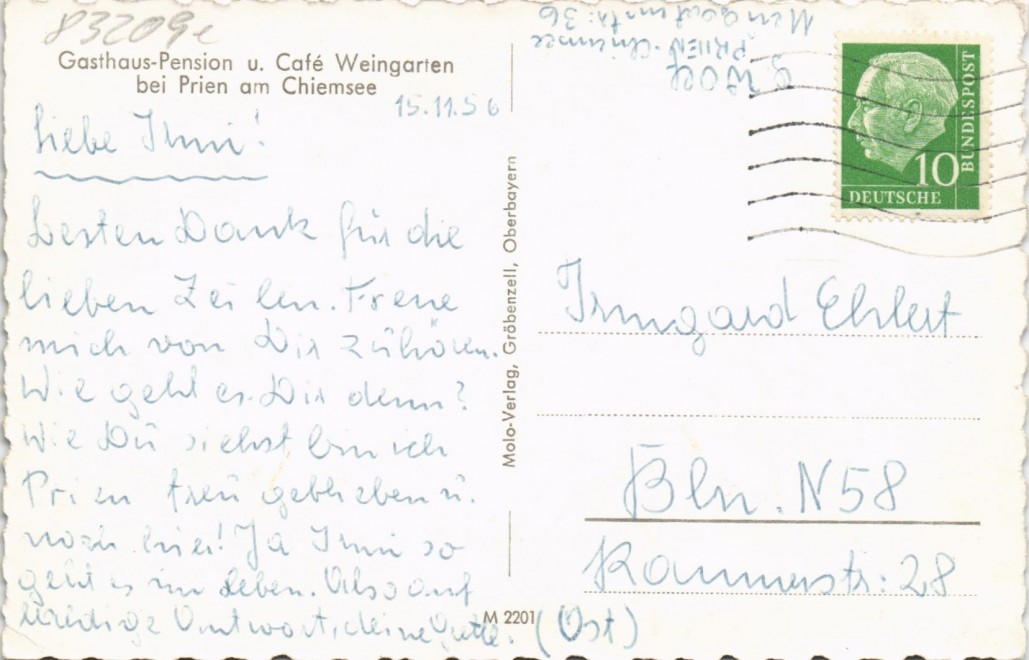 83209e
Gasthaus-Pension u. Café Weingarten
bei Prien am Chiemsee
15.11.56
Liebe Irmi!
Besten Dank für die
lieben Zeilen. Freue
mich von Dir zuhören.
Wie geht es Dir denn?
Wie Du siehst bin ich
Prien treu geblieben u.
noch hier! Ja Irmi so
geht es im Leben. Also auf
baldige Antwort, deine
Molo-Verlag, Gröbenzell, Oberbayern
M 2201
PRIEN-Chiemsee
36
10
DEUTSCHE
BUNDESPOST
Irmgard Ehlert
Bln. N58
28
(Ost)